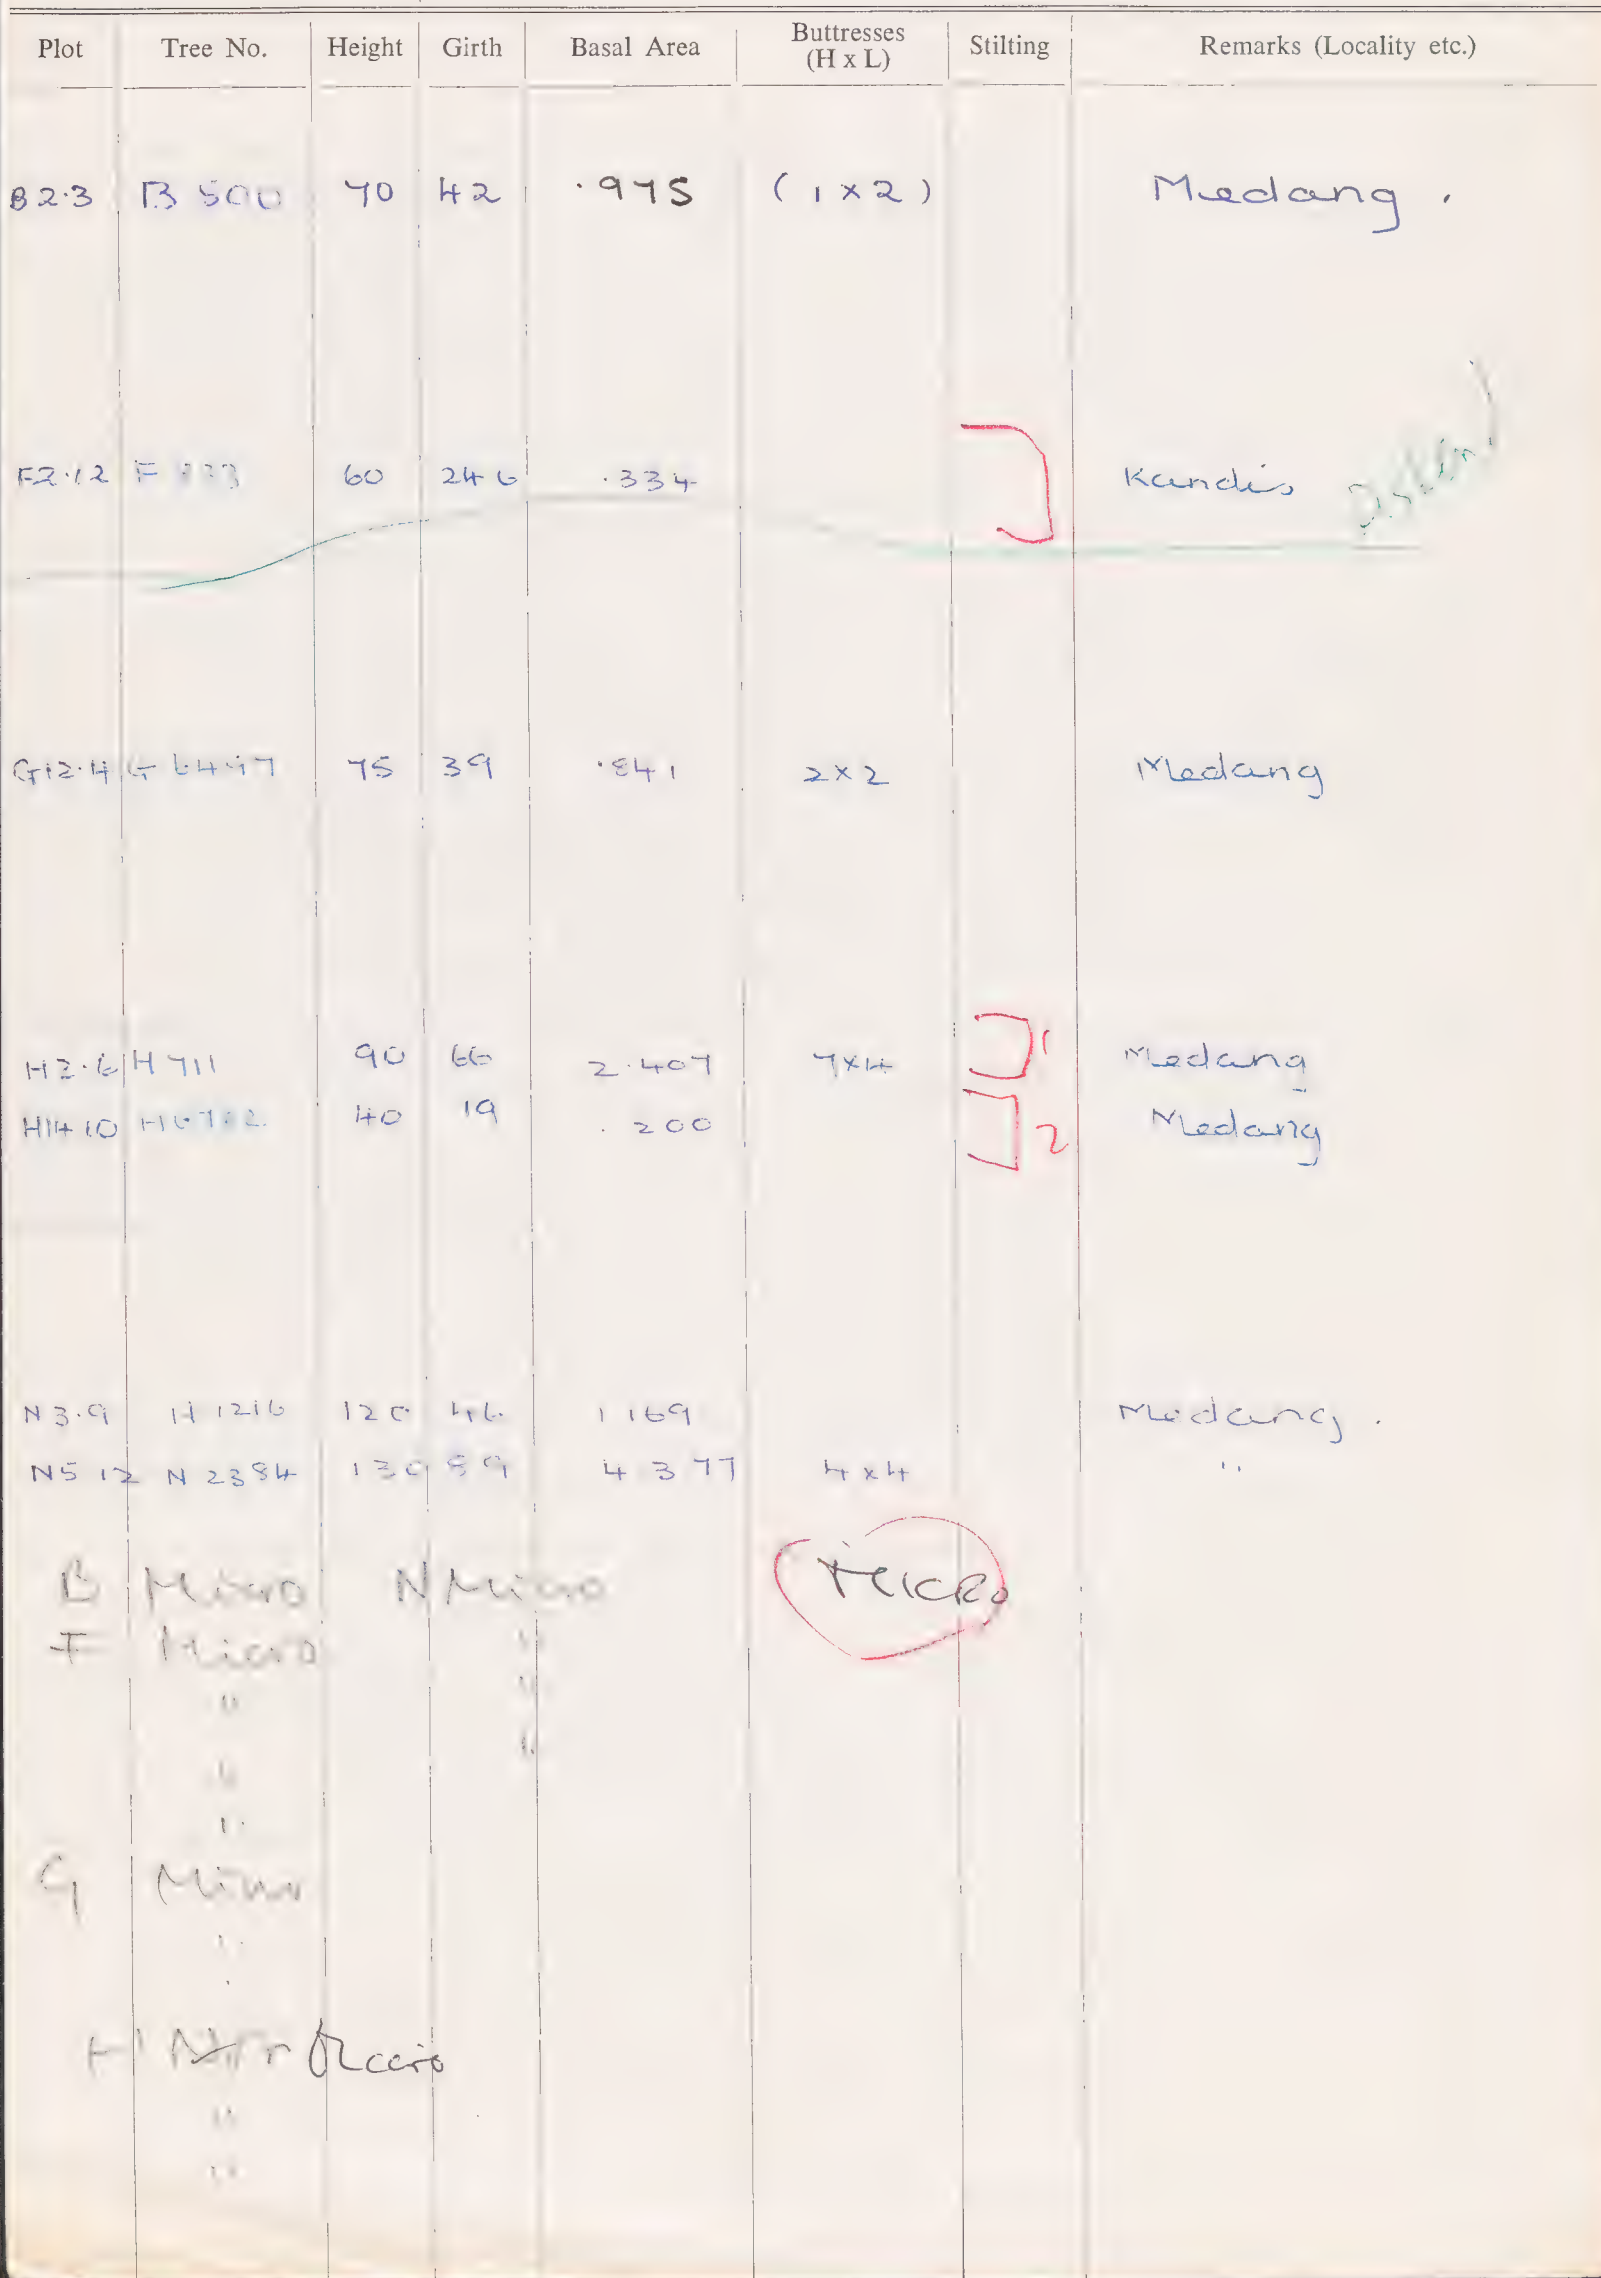 Plot Tree No. Height Girth Basal Area Buttresses (H x L) Stilting Remarks (Locality etc.)
B2.3 B 500 70 42 .975 (1 x 2) Medang .
F2.12 F 60 24 6 .334 Kandis
G12.4 G 75 39 .841 2 x 2 Medang
H2.6 H 711 90 66 2.407 7 x 4 ] 1 Medang
H14 10 40 19 .200 ] 2 Medang
N3.9 N 1216 120 46 1 169 Medang .
N5 12 N 2384 130 89 4 377 4 x 4 "
B Micro N Micro MICRO
F Micro "
" "
"
"
"
G Micro
"
"
H Micro
"
"